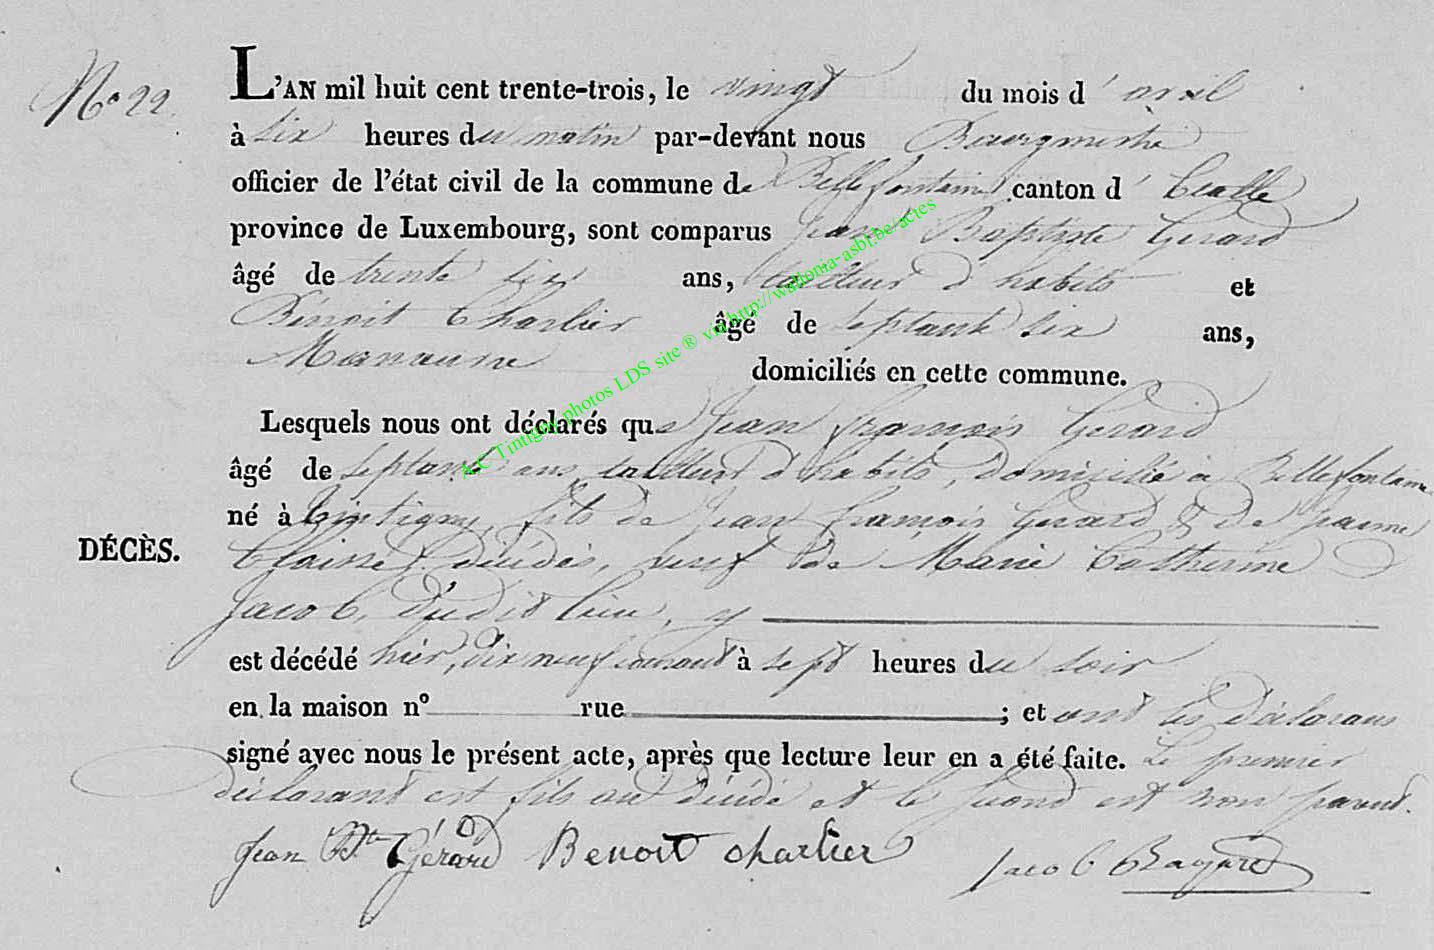 No 22.
L'AN mil huit cent trente-trois, le vingt du mois d'avril
à six heures du matin par-devant nous Bourgmestre
officier de l'état civil de la commune de Bellefontaine canton d'Etalle
province de Luxembourg, sont comparus Jean Baptiste Gerard
âgé de trente six ans, tailleur d'habits et
Bénoit Charlier âgé de septante six ans,
Manœuvre domiciliés en cette commune.
Lesquels nous ont déclarés que Jean françois Gerard
âgé de septante ans, tailleur d'habits, domicilié a Bellefontaine
né à Tintigny, fils de Jean françois Gerard & de Jeanne
décédés, veuf de Marie Catherine
DÉCÈS.
Jacob, dudit lieu, y
est décédé hier, dix neuf courant à sept heures du soir
en la maison nº rue ; et ont les déclarans
signé avec nous le présent acte, après que lecture leur en a été faite. Le premier
déclarant est fils au décédé et le second est non parent.
Jean Bte Gérard Benoit charlier Jacob
A.C Tintigny photos LDS site ® via http://wallonia-asbl.be/actes